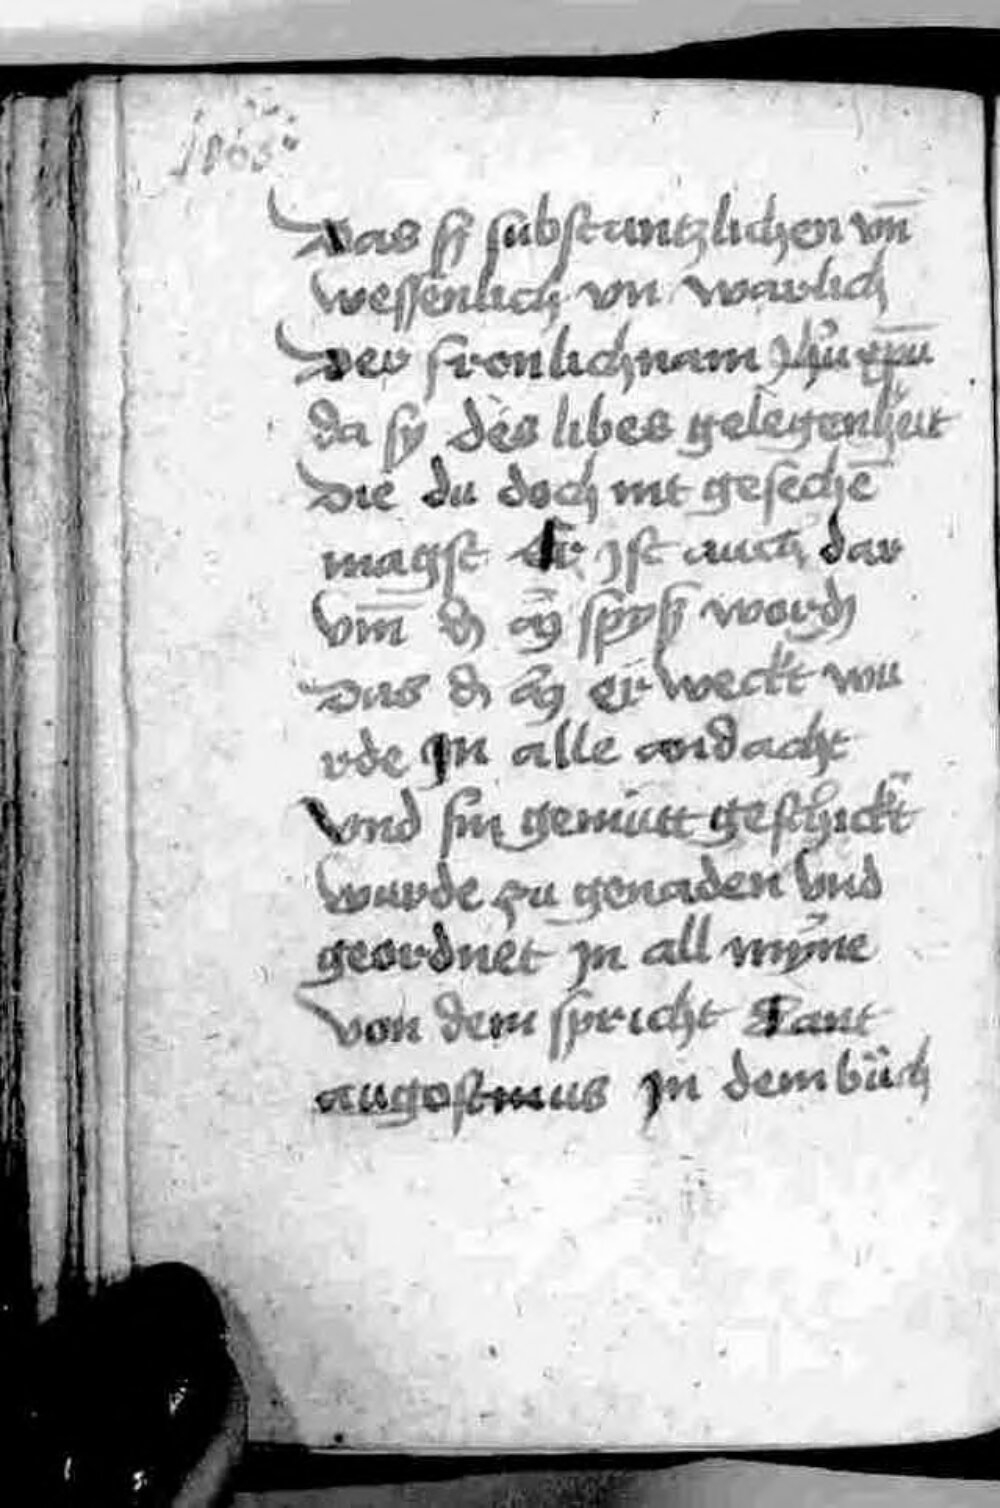 Das sy substantzlichen vn̄
wessenlich vn warlich
Der fronlichnam Jhu xp̄u
da sy des libes gelegenheit
Die du doch nit gesechē
magst Er jst auch dar
vm̄ dz spyß
Das dz er weckt wu
rde Jn alle andacht
Vnd sin gemütt geschickt
wurde zu genaden vnd
geordnet jn all mȳne
Von dem spricht Sant
augostinus Jn dem büch